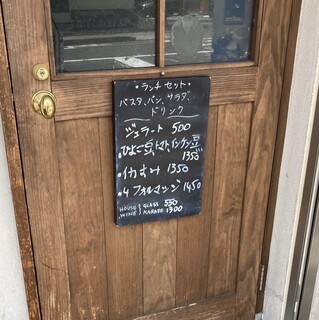 ・ランチ セット・
パスタ、パン、サラダ、
ドリンク
ジェラート 500
・ひよこ豆、トマト、インゲン豆
1350
・イカすみ 1350
・4 フォルマッジ 1450
HOUSE GLASS 550
WINE KARAFE 1300